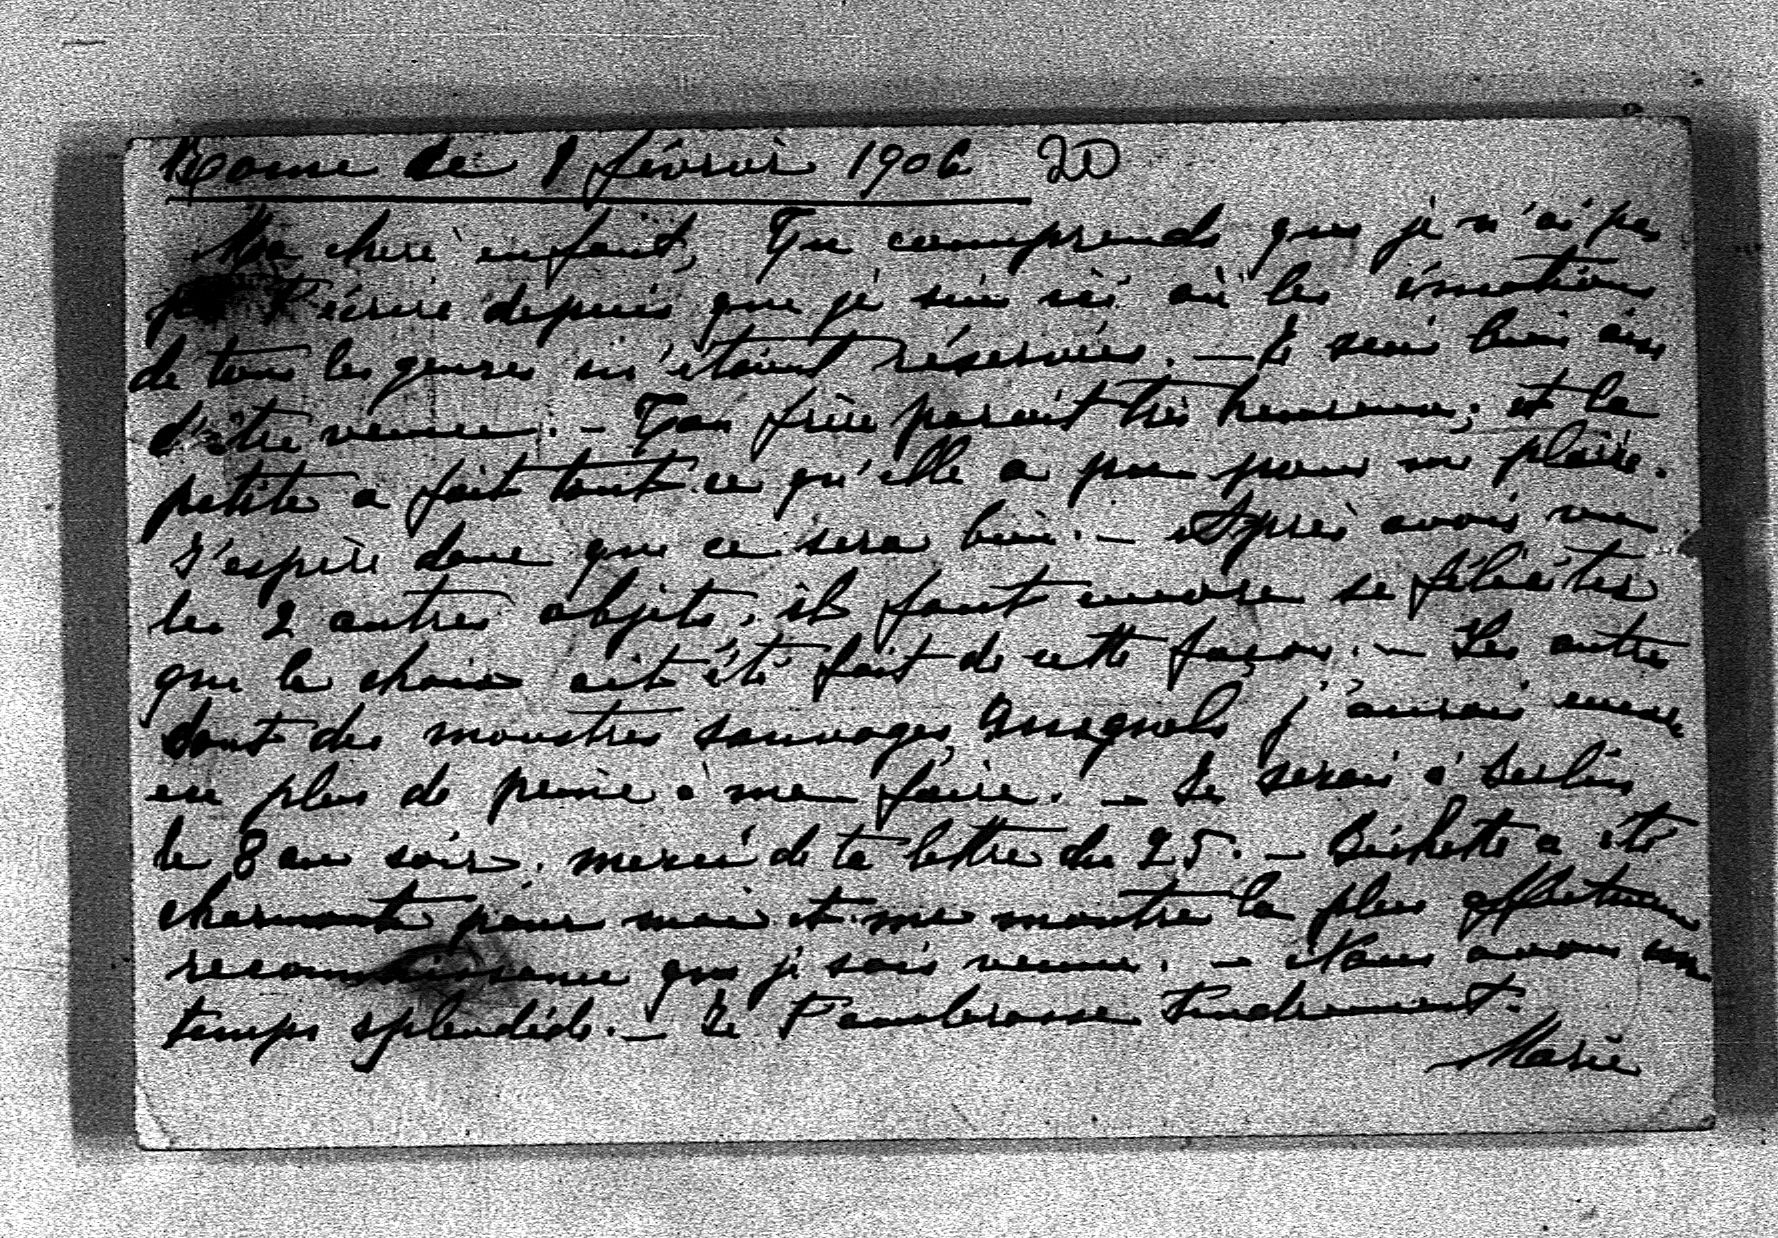 Rome le 1 février 1906 20
Ma chère enfant, Tu comprends que je n'ai pas
pu t'écrire depuis que je suis ici où les émotions
de tous les genres m'étaient réservées. — Je suis bien aise
d'être venue. — Ton frère parait très heureux, et la
petite a fait tout ce qu'elle a pu pour me plaire.
J'espère donc que ce sera bien. — Après avoir vu
les 2 autres objets, il faut encore se féliciter
que le choix ait été fait de cette façon. — Les autres
sont des monstres sauvages auxquels j'aurais encore
eu plus de peine à me faire. — Je serai à Berlin
le 8 au soir. merci de ta lettre du 25. — a été
charmante pour moi et me montre la plus affectueuse
reconnaissance que je sois venue. — Nous avons un
temps splendide. — Je t'embrasse tendrement.
Marie